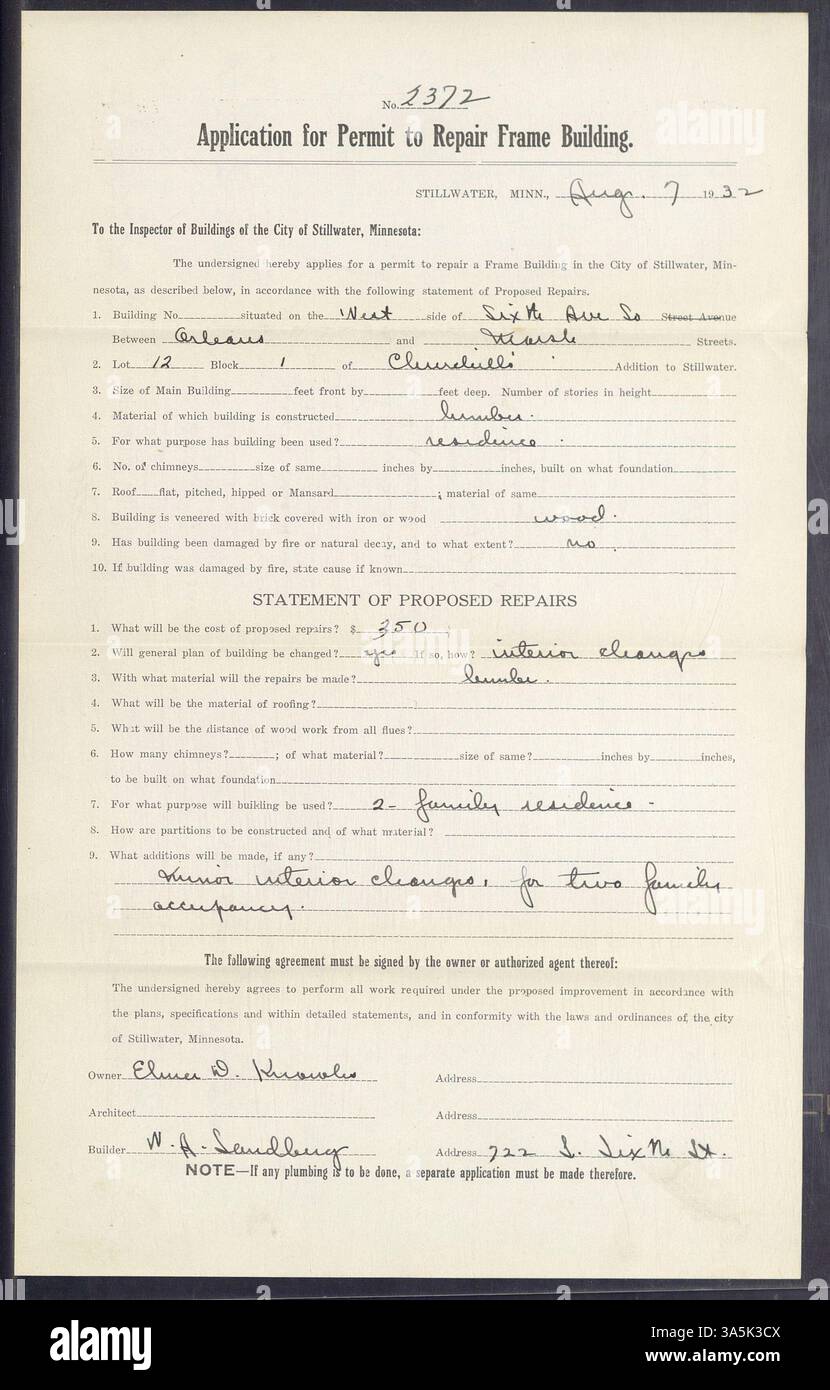 No. 2372
Application for Permit to Repair Frame Building.
STILLWATER, MINN., Aug. 7 1932
To the Inspector of Buildings of the City of Stillwater, Minnesota:
The undersigned hereby applies for a permit to repair a Frame Building in the City of Stillwater, Min-
nesota, as described below, in accordance with the following statement of Proposed Repairs.
1. Building No. situated on the West side of Sixth Ave So Street Avenue
Between Orleans and Marsh Streets.
2. Lot 12 Block 1 of Churchill's Addition to Stillwater.
3. Size of Main Building feet front by feet deep. Number of stories in height
4. Material of which building is constructed lumber.
5. For what purpose has building been used? residence.
6. No. of chimneys size of same inches by inches, built on what foundation
7. Roof flat, pitched, hipped or Mansard ; material of same
8. Building is veneered with brick covered with iron or wood wood.
9. Has building been damaged by fire or natural decay, and to what extent? no.
10. If building was damaged by fire, state cause if known
STATEMENT OF PROPOSED REPAIRS
1. What will be the cost of proposed repairs? $ 350
2. Will general plan of building be changed? yes If so, how? interior changes
3. With what material will the repairs be made? lumber.
4. What will be the material of roofing?
5. What will be the distance of wood work from all flues?
6. How many chimneys? ; of what material? size of same? inches by inches,
to be built on what foundation
7. For what purpose will building be used? 2- family residence -
8. How are partitions to be constructed and of what material?
9. What additions will be made, if any?
Minor interior changes, for two family
occupancy.
The following agreement must be signed by the owner or authorized agent thereof:
The undersigned hereby agrees to perform all work required under the proposed improvement in accordance with
the plans, specifications and within detailed statements, and in conformity with the laws and ordinances of the city
of Stillwater, Minnesota.
Owner Elmer D. Knowles Address
Architect Address
Builder W. A. Sandberg Address 722 S. Sixth St.
NOTE—If any plumbing is to be done, a separate application must be made therefore.
alamy
Image ID: 3A5K3CX
www.alamy.com